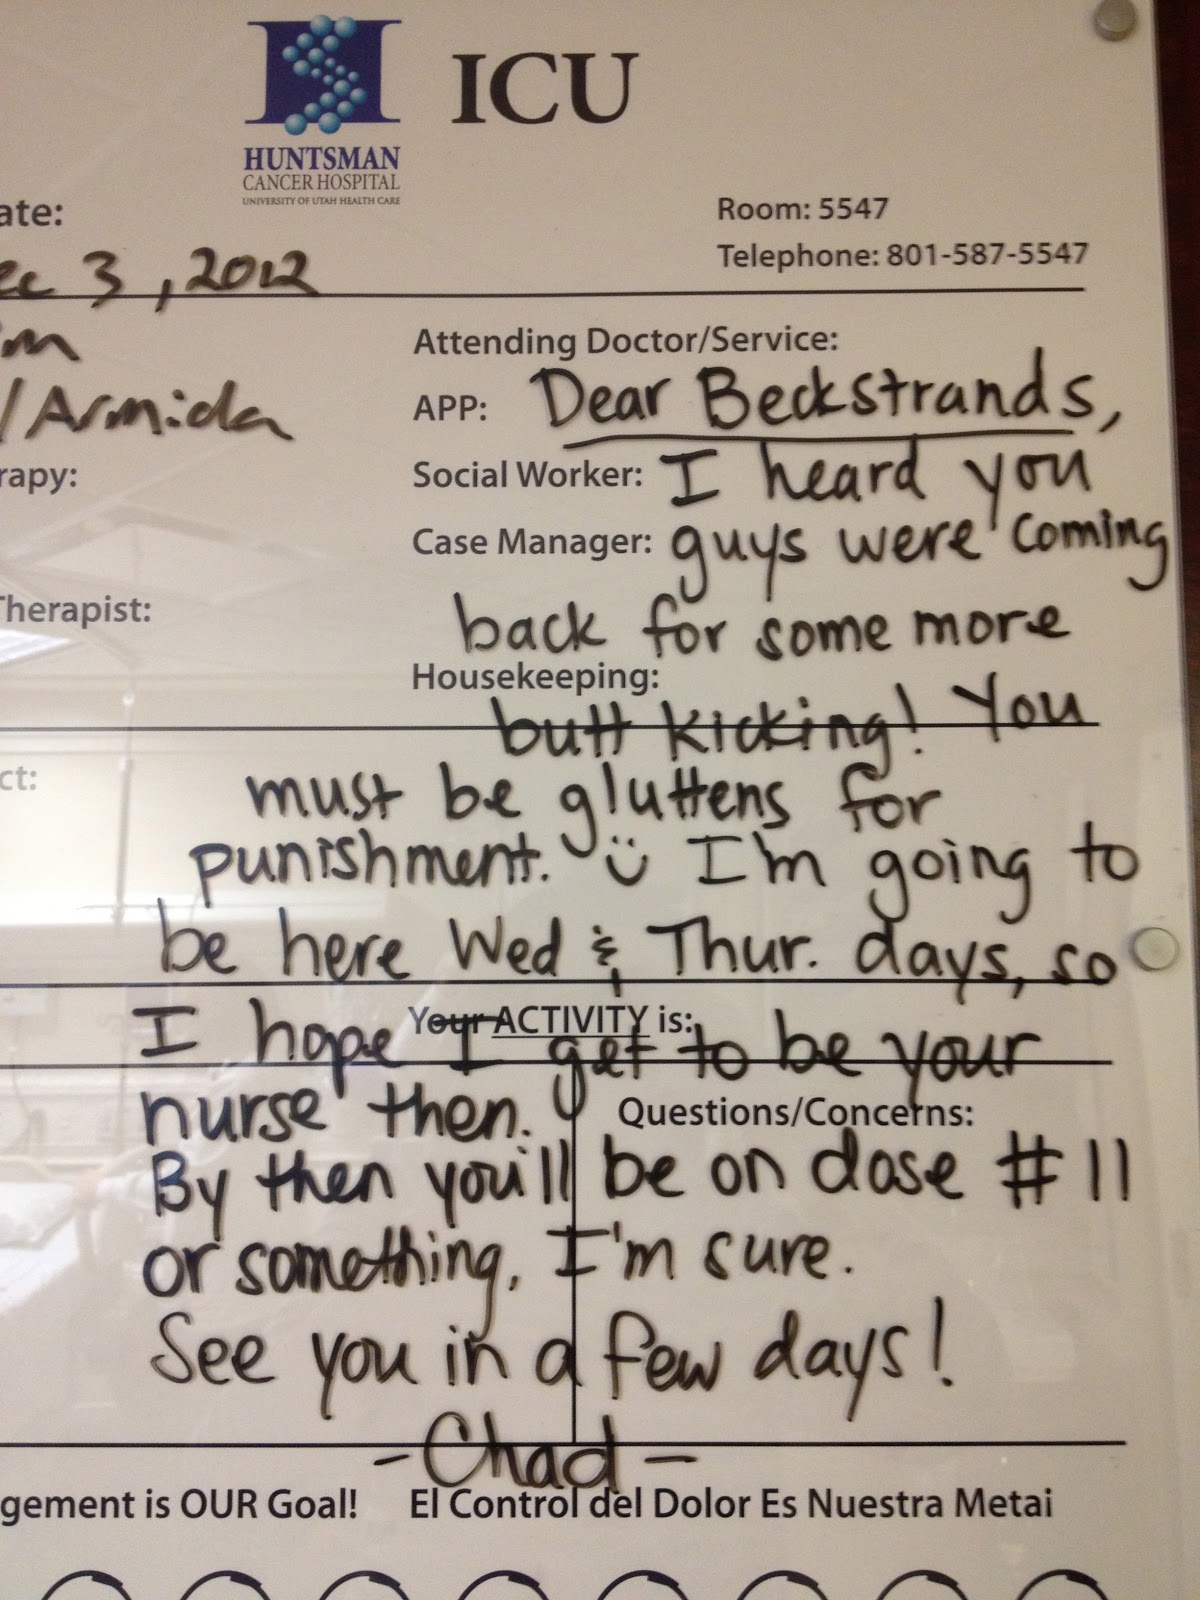 ICU
HUNTSMAN
CANCER HOSPITAL
UNIVERSITY OF UTAH HEALTH CARE
ate:
Room: 5547
Telephone: 801-587-5547
ec 3, 2012
Attending Doctor/Service:
/Armida
APP: Dear Beckstrands,
rapy:
Social Worker: I heard you
Case Manager: guys were coming
Therapist:
back for some more
Housekeeping:
butt kicking! You
ct:
must be gluttens for
punishment. I'm going to
be here Wed & Thur. days, so
Your ACTIVITY is:
I hope I get to be your
nurse then.
Questions/Concerns:
By then you'll be on dose #11
or something, I'm sure.
See you in a few days!
-Chad-
gement is OUR Goal! El Control del Dolor Es Nuestra Metai